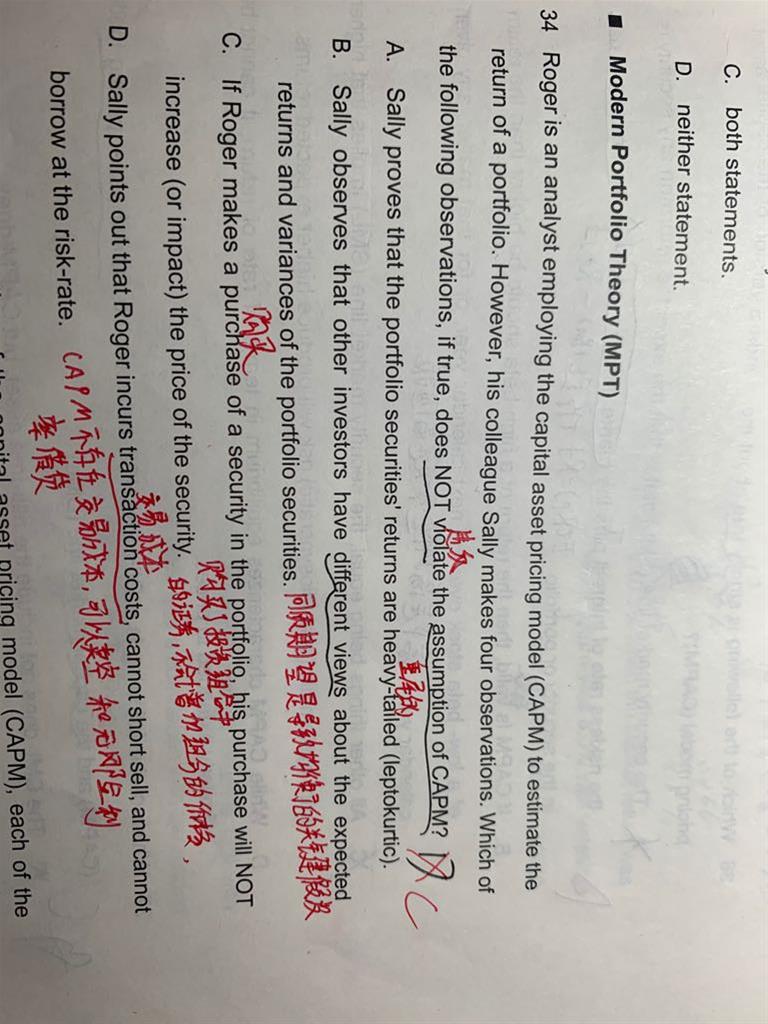 C. both statements.
D. neither statement.
■ Modern Portfolio Theory (MPT)
34 Roger is an analyst employing the capital asset pricing model (CAPM) to estimate the
return of a portfolio. However, his colleague Sally makes four observations. Which of
the following observations, if true, does NOT violate the assumption of CAPM? C
A. Sally proves that the portfolio securities' returns are heavy-tailed (leptokurtic).
B. Sally observes that other investors have different views about the expected
returns and variances of the portfolio securities.
同质期望是导致均衡的关键假设
购买
C. If Roger makes a purchase of a security in the portfolio, his purchase will NOT
increase (or impact) the price of the security.
购买了投资组合中
的证券,不会增加组合的价格,
交易成本
D. Sally points out that Roger incurs transaction costs, cannot short sell, and cannot
borrow at the risk-rate.
CAPM不存在交易成本,可以卖空和无风险利
率借贷
capital asset pricing model (CAPM), each of the